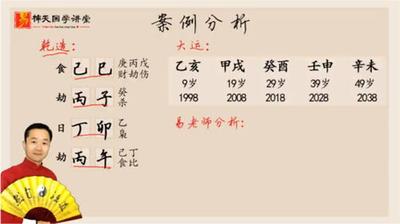 神天国学讲堂
案例分析
乾造:
大运:
食 己巳 庚丙戊
财劫伤
劫 丙子 癸
杀
日 丁卯 乙
枭
劫 丙午 己丁
食比
乙亥 甲戌 癸酉 壬申 辛未
9岁 19岁 29岁 39岁 49岁
1998 2008 2018 2028 2038
易老师分析: